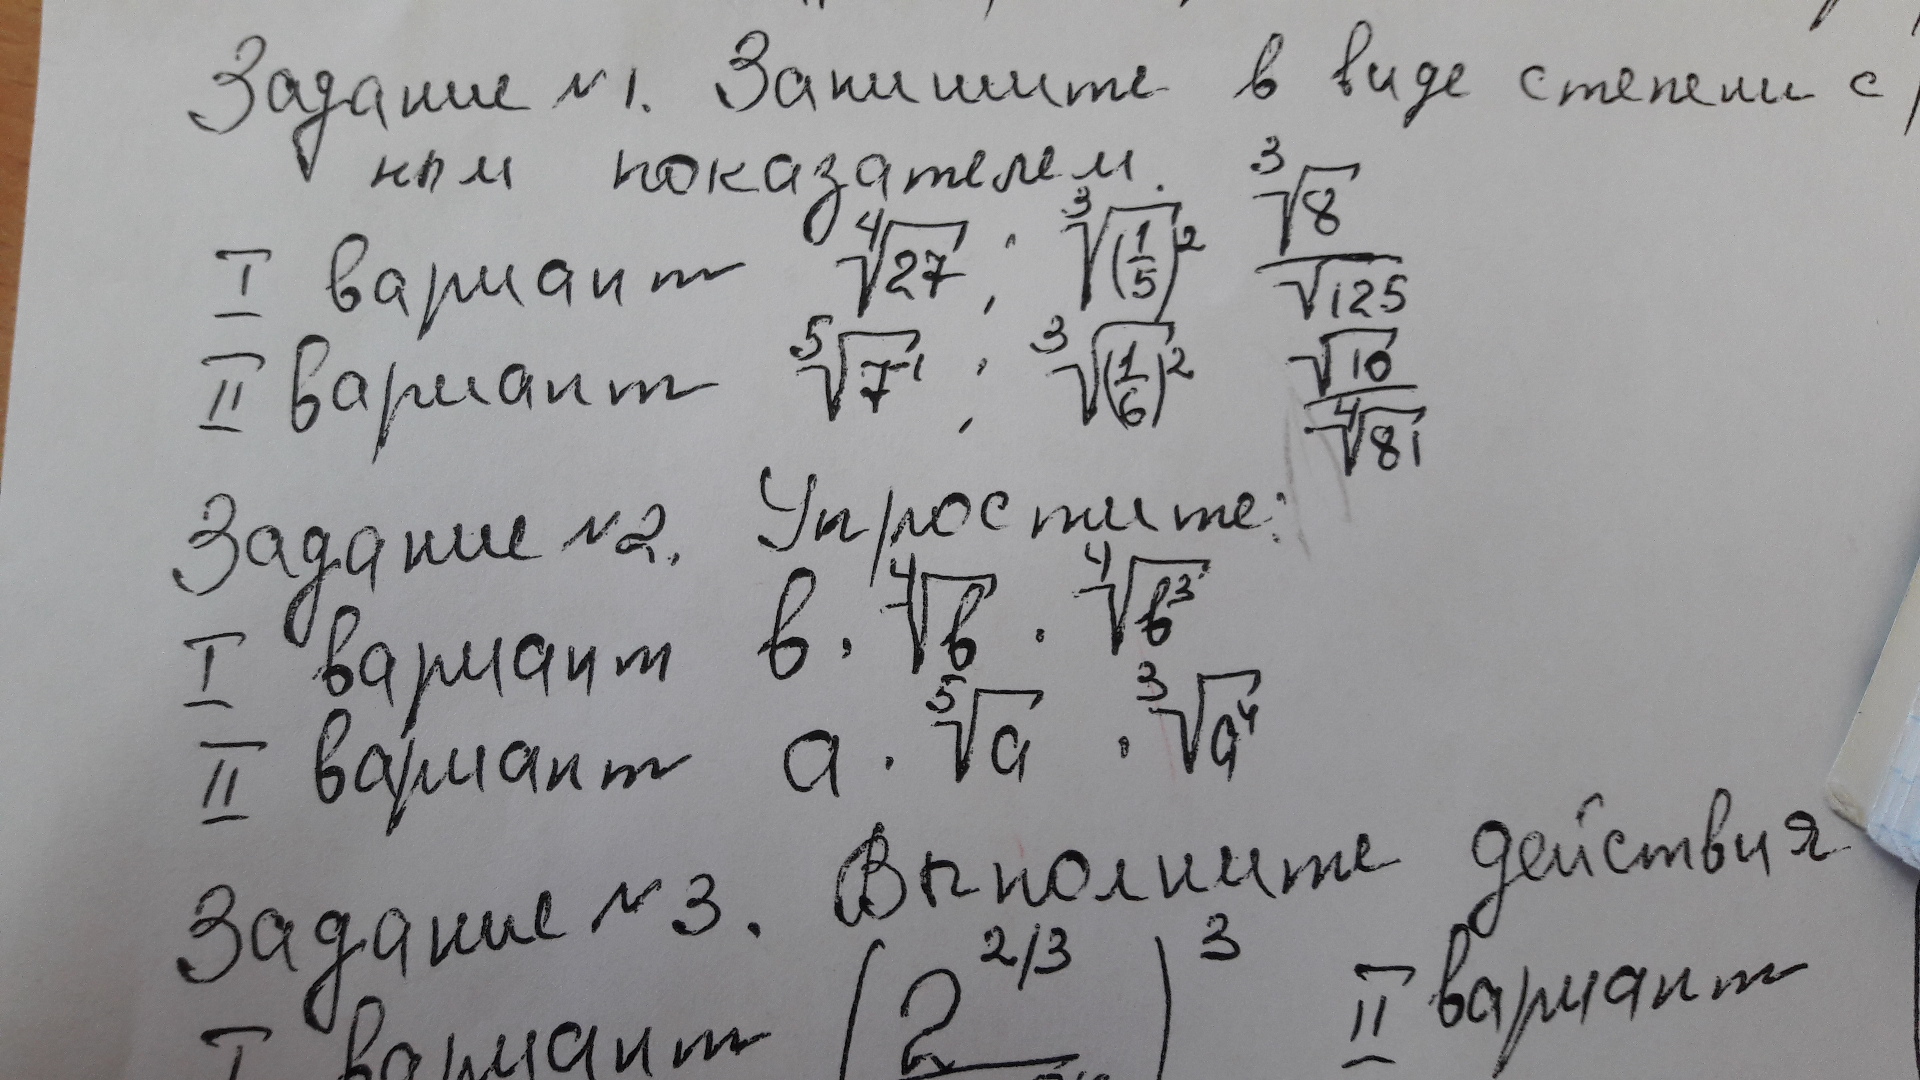 Задание №1. Запишите в виде степени с
ным показателем.
I вариант ⁴√27 ; ³√(1/5)² ³√8/√125
II вариант ⁵√7⁻¹ ; ³√(1/6)² √10/⁴√81
Задание №2. Упростите:
I вариант в · ⁴√в · ⁴√в³
II вариант а · ⁵√а · ³√а⁴
Задание №3. Выполните действия
I вариант (2^2/3)³ II вариант